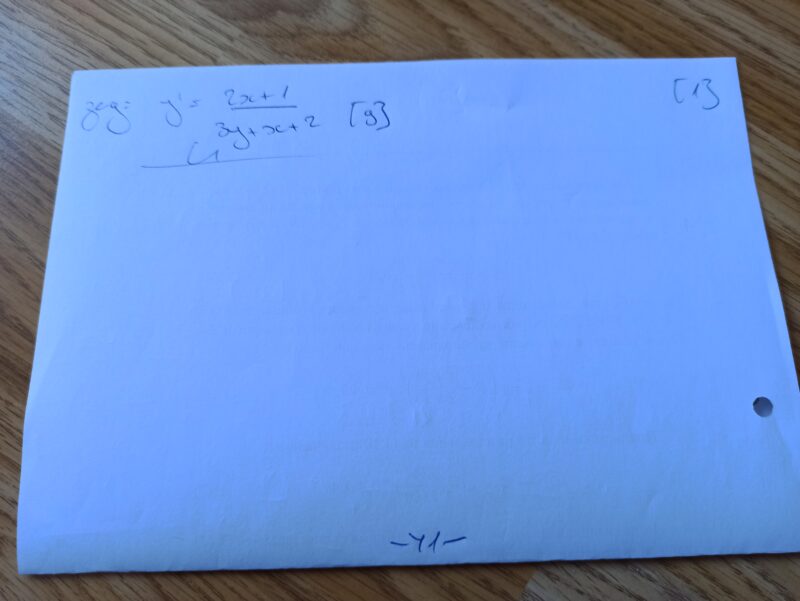 geg: y' = 2x+1 / 3y+x+2 [g] [1]
-Y1-